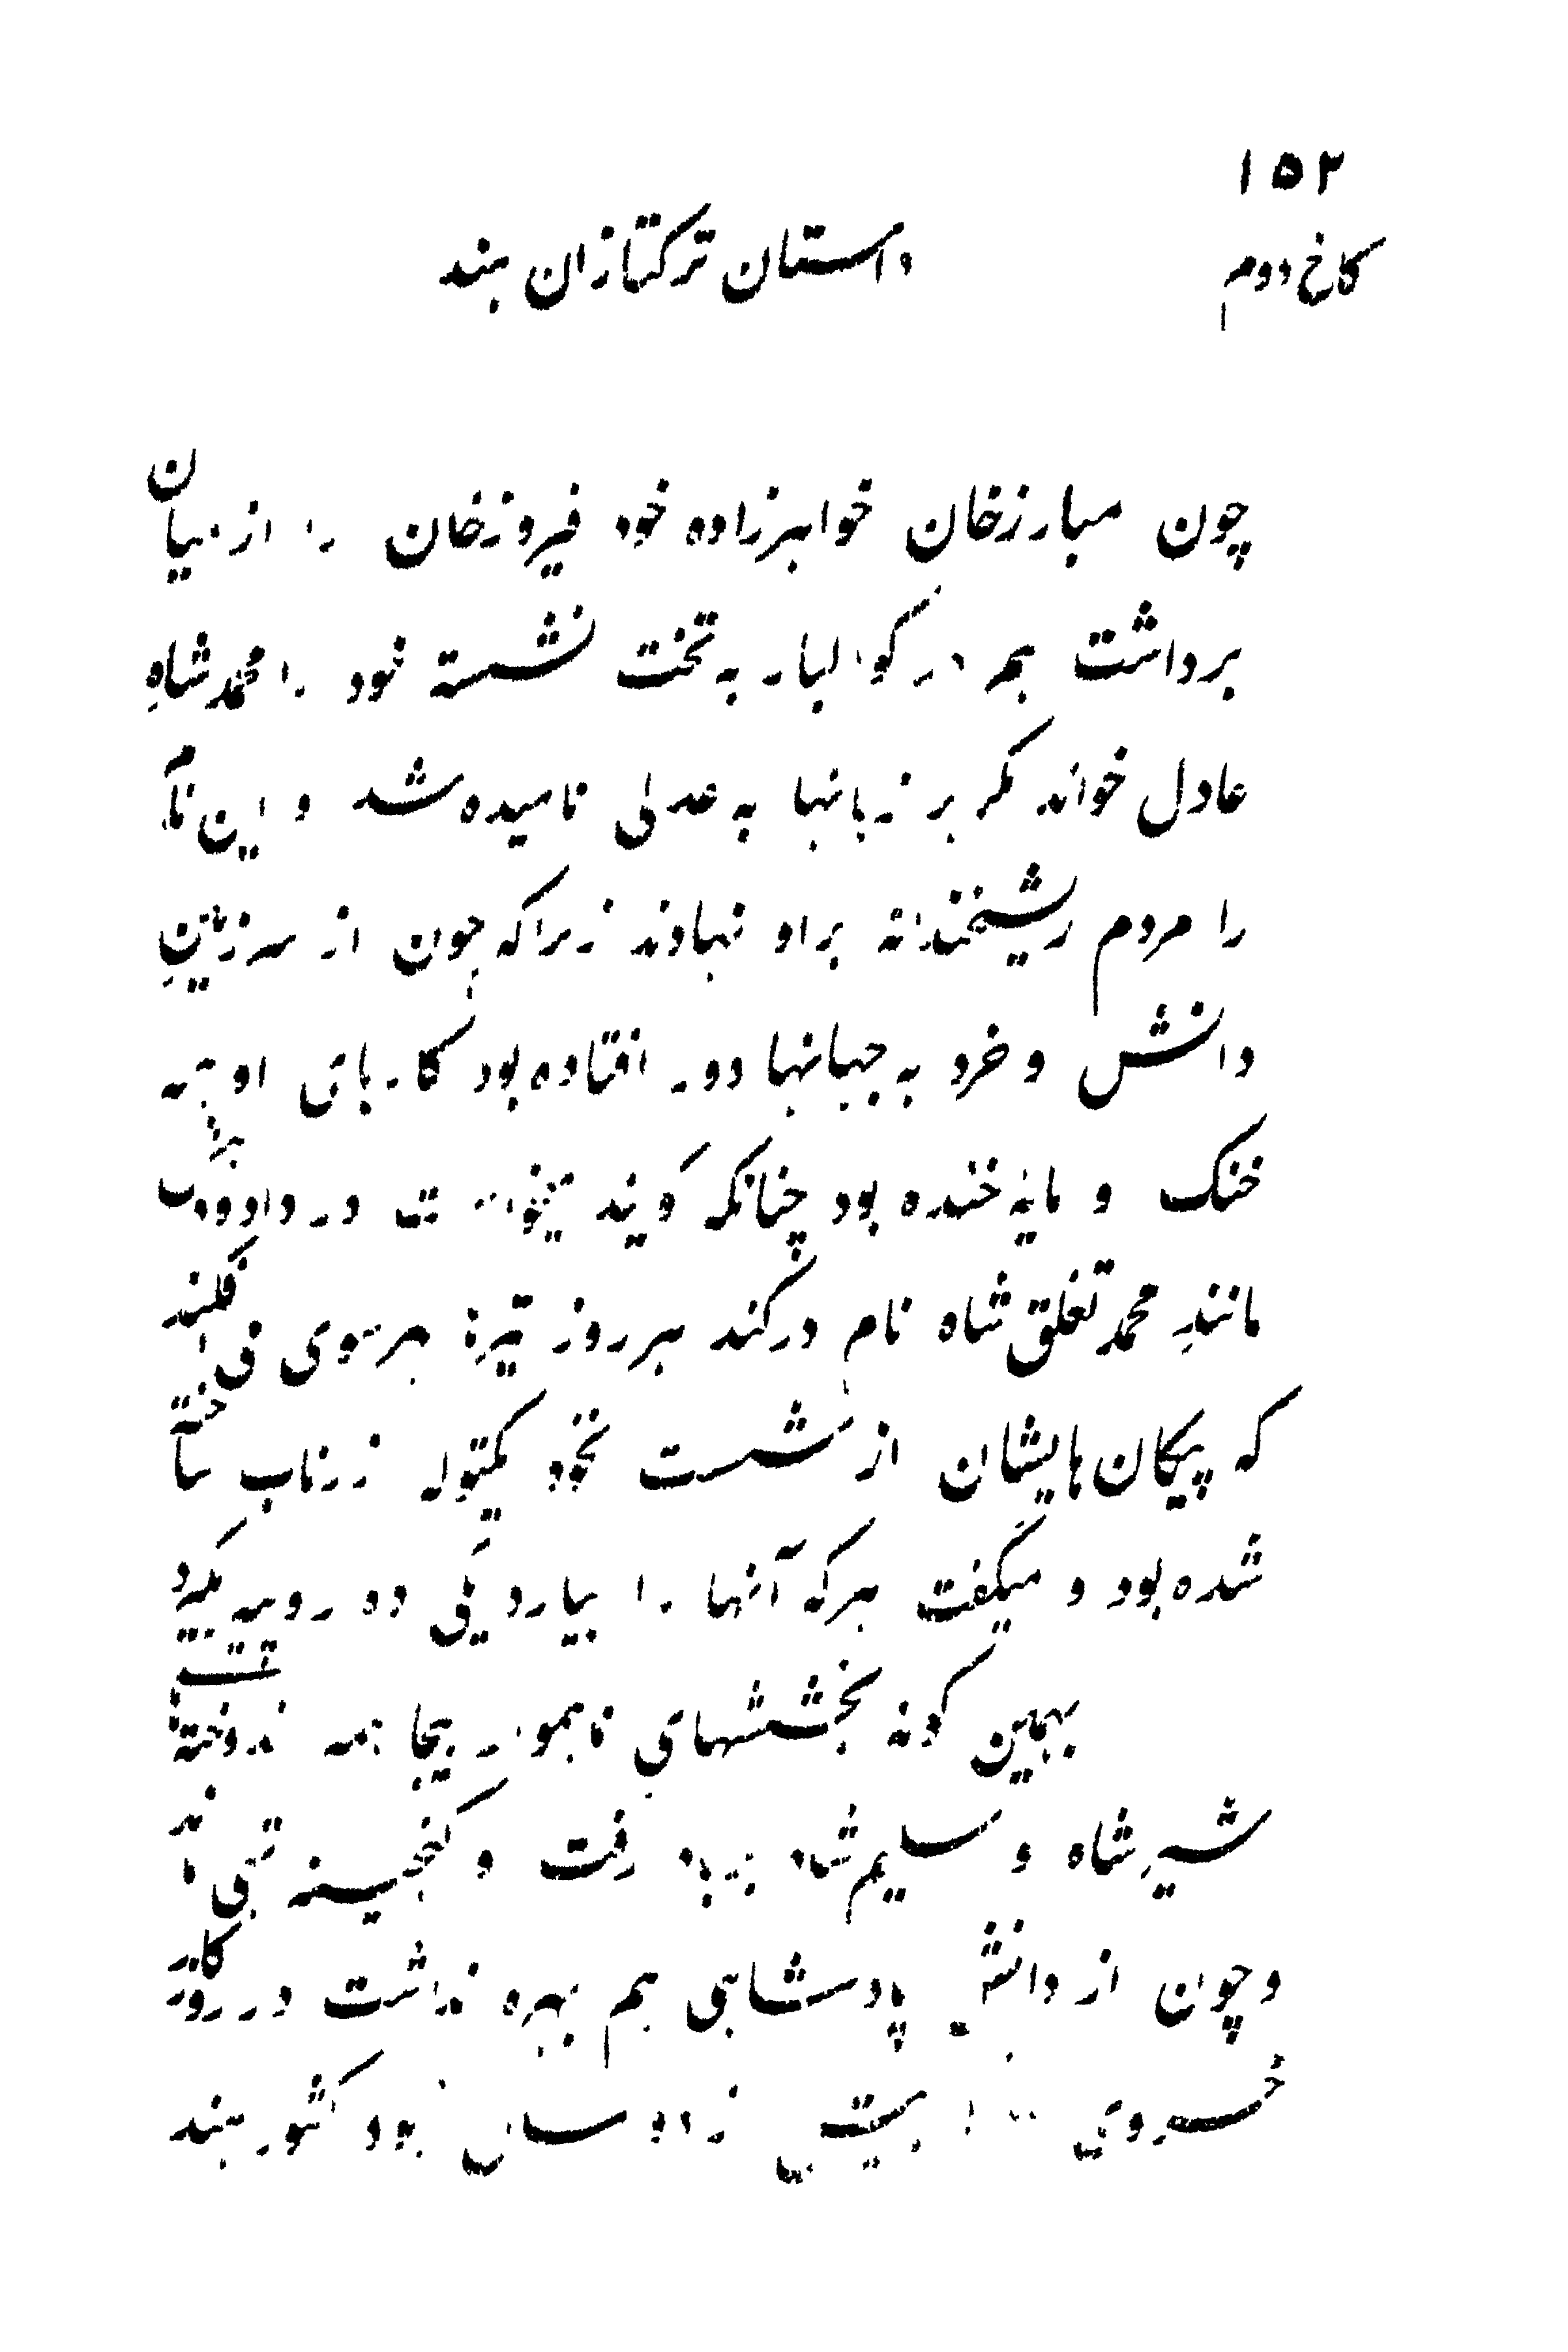 ۱۵۲
کاخ دوم
داستان ترکتازان هند
چون مبارزخان خواهرزاده خود فیروزخان را از میان
برداشت هم در کوالیار به تخت نشسته خود را محمد شاهِ
عادل خواند مکر بر زبانها به عدلی نامیده شد و این نام
را مردم ریشخندانه براو نهادند زیراکه چون از سرزمینِ
دانش و خرد به جهانها دور افتاده بود کارهای او همه
خنک و مایهٔ خنده بود چنانکه کویند میخواست در داد و دهش
مانندِ محمد تغلق شاه نام درکند هر روز تیرها بهرسوی می‌افکند
که پیکان هایشان از شست نخود یکتوله زر ناب ساخته
شده بود و میکفت هرکه آنها را بیارد یکی ده روپیه بگیرد
بهمین کونه بخششهای ناهموار بیجا همه اندوخته
شیرشاه و سلیم شاه برباد رفت و کنجینه تهی ماند
و چون از دانش پادشاهی هم بهره نداشت در روزکار
خسروی بود کشور هند